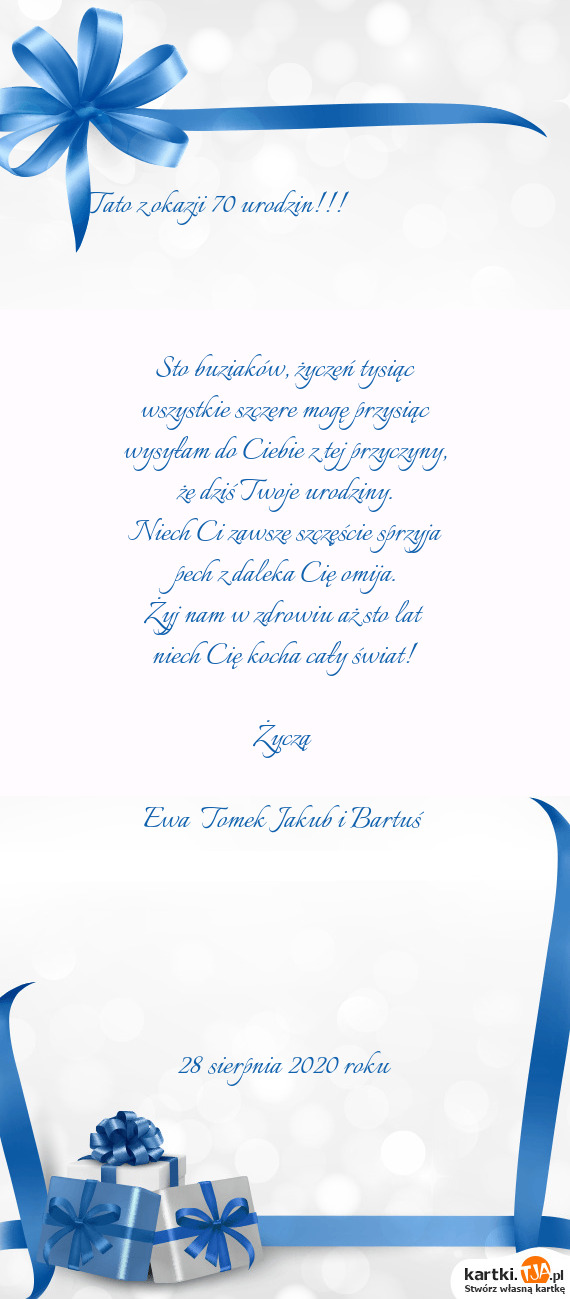 Tato z okazji 70 urodzin!!!
Sto buziaków, życzeń tysiąc
wszystkie szczere mogę przysiąc
wysyłam do Ciebie z tej przyczyny,
że dziś Twoje urodziny.
Niech Ci zawsze szczęście sprzyja
pech z daleka Cię omija.
Żyj nam w zdrowiu aż sto lat
niech Cię kocha cały świat!
Życzą
Ewa Tomek Jakub i Bartuś
28 sierpnia 2020 roku
kartki.TJA.pl
Stwórz własną kartkę